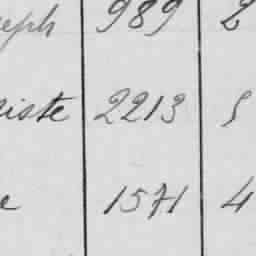 eph 989 2
iste 2213 5
e 1571 4